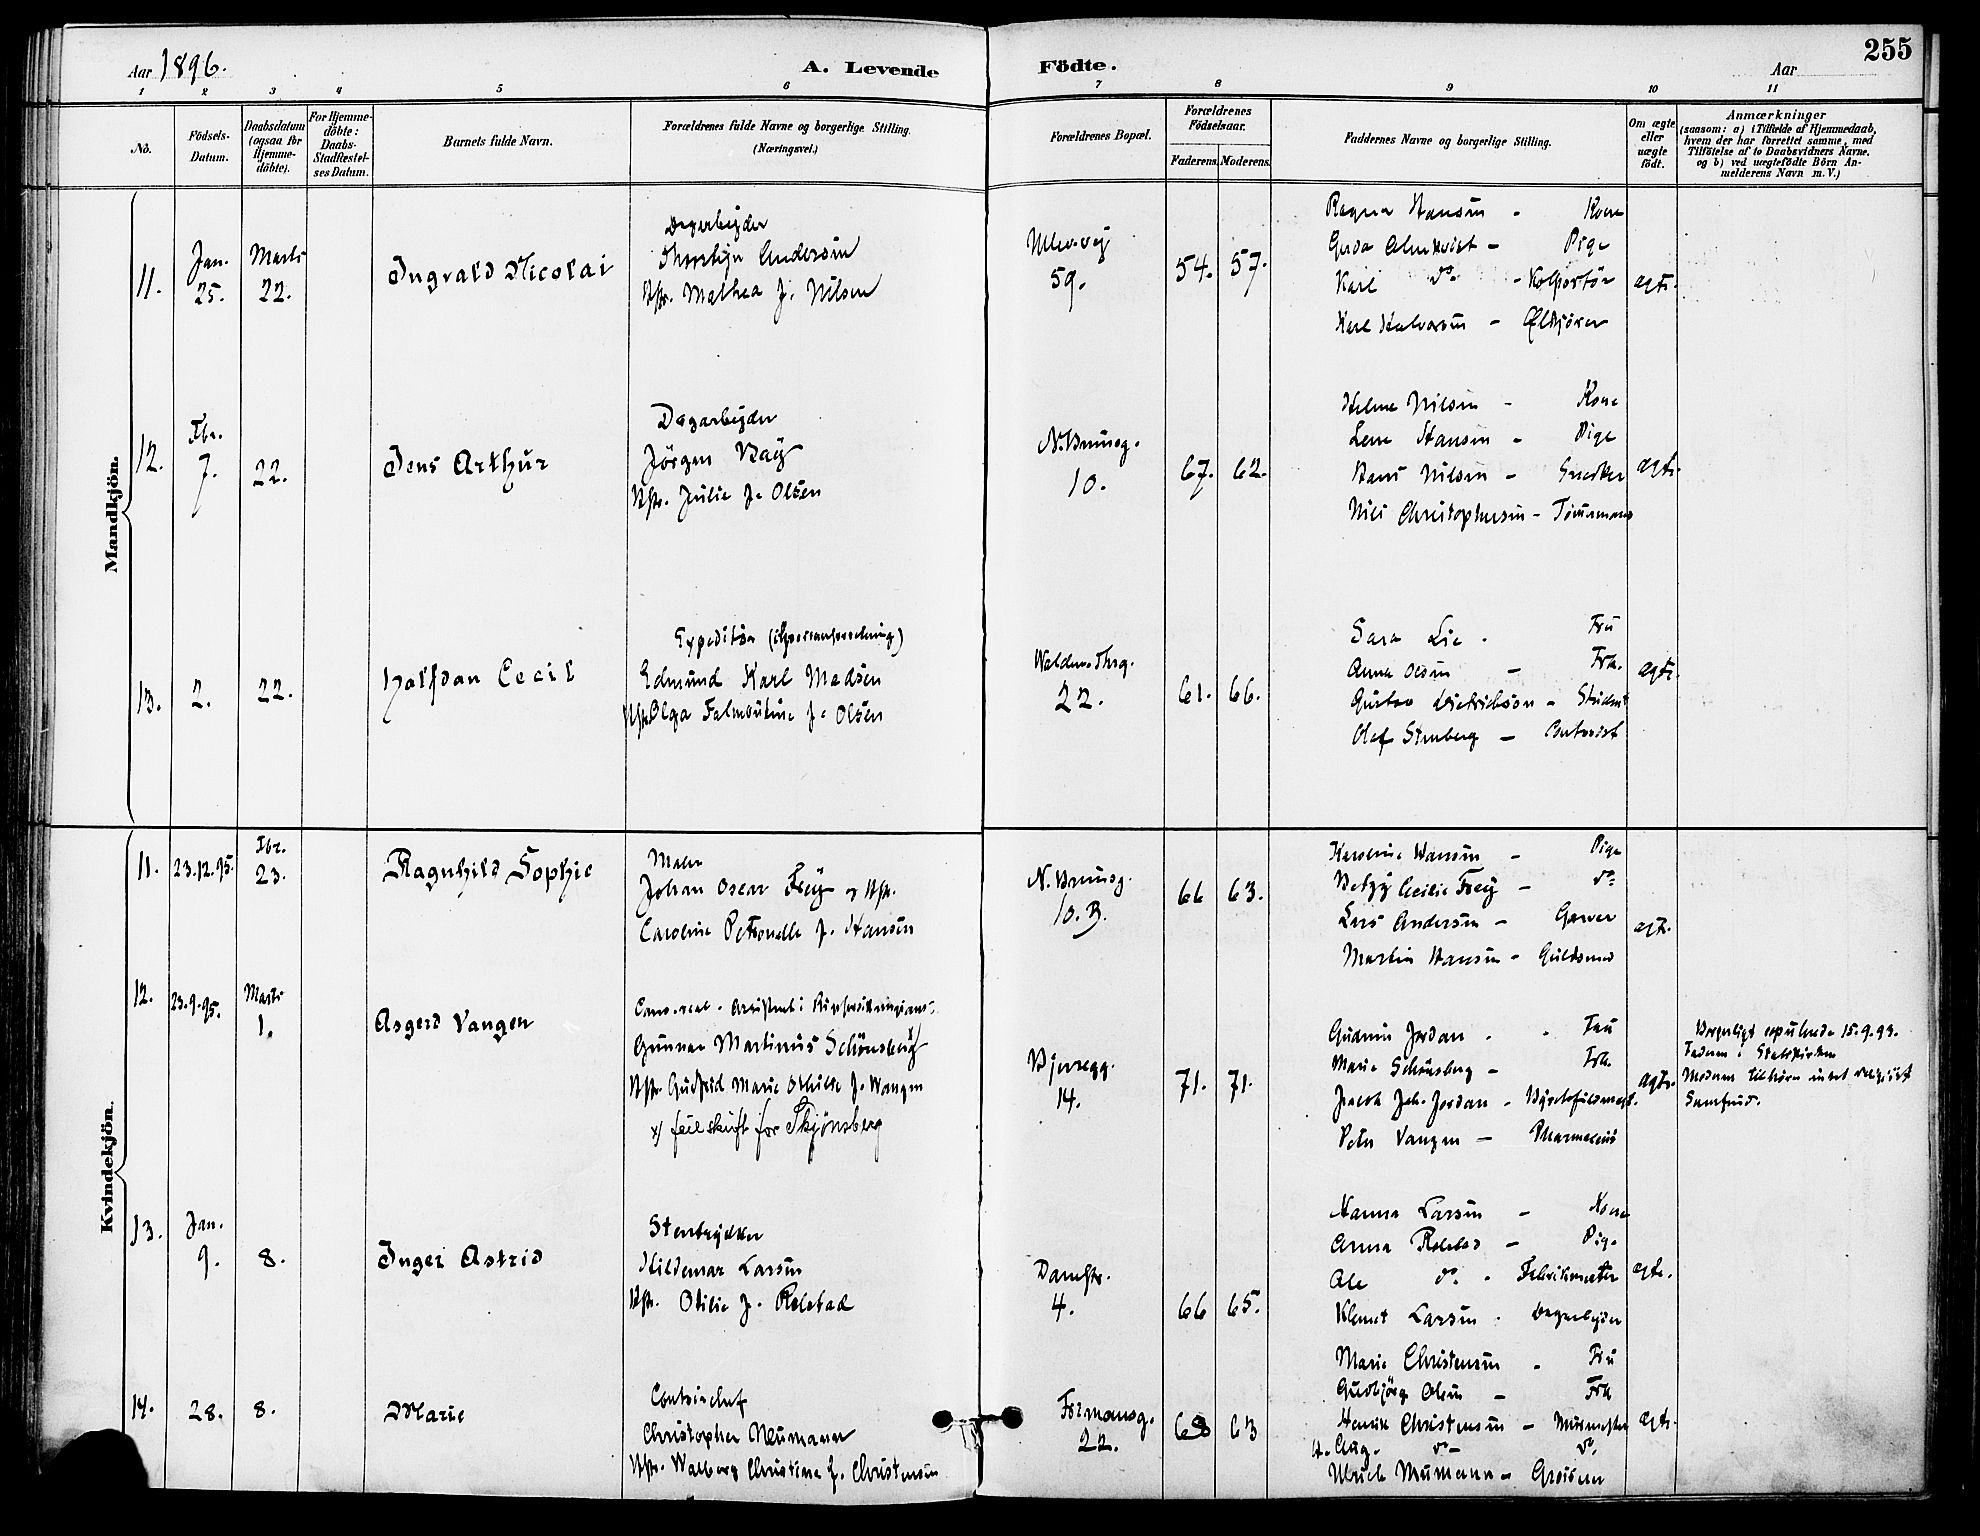 255
Aar 1896.
A. Levende Födte.
Aar
1 2 3 4 5 6 7 8 9 10 11
No.
Födsels-Datum.
Daabsdatum (ogsaa for Hjemme-döbte).
For Hjemme-döbte: Daabs-Stadfæstel-ses Datum.
Barnets fulde Navn.
Forældrenes fulde Navne og borgerlige Stilling. (Næringsvei.)
Forældrenes Bopæl.
Forældrenes Födselsaar.
Faderens. Moderens.
Faddernes Navne og borgerlige Stilling.
Om ægte eller uægte født.
Anmærkninger
(saasom: a) i Tilfælde af Hjemmedaab, hvem der har forrettet samme, med Tilföielse af to Daabsvidners Navne, og b) ved uægtefödte Börn Anmelderens Navn m. V.)
Mandkjön.
11.
Jan. 25.
Marts 22.
Ingvald Nicolai
Dagarbejder
Thorbjn Andersen
Hstr. Mathea f. Nilsen
59.
54. 57.
Ragna Hansen - Kone
Gerda Almkvist - Pige
Karl do - Kolportör
Karl Halvorsen - Ølkjører
ægte.
12.
Fbr. 7.
22.
Jens Arthur
Dagarbejder
Jörgen Bay
Hstr. Julie f. Olsen
N. Brunsg.
10.
67. 62.
Helene Nilsen - Kone
Lene Hansen - Pige
Hans Nilsen - Snedker
Nils Christophersen - Tömmermand
ægte.
13.
2.
22.
Halfdan Cecil
Expeditör
Edmund Karl Madsen
Hstr. Olga Falmoutine f. Olsen
Waldem. Thrsg.
22.
61. 66.
Sara Lie - Fru
Anna Olsen - Frk.
Gustav Dietrichson - Student
Olaf Stenberg -
ægte.
Kvindekjön.
11.
23.12.95.
Fbr. 23.
Ragnhild Sophie
Maler
Johan Oscar Frey og Hstr.
Caroline Petronelle f. Hansen
N. Brunsg.
10. B.
66 63.
Karoline Hansen - Pige
Betzy Cecilie Frey - do
Lars Andersen - Garver
Martin Hansen - Guldsmed
ægte.
12.
23.9.95.
Marts 1.
Asgerd Vangen
Gunnar Martinus Schönsberg x)
Hstr. Gudrid Marie Othilie f. Wangen
x) feilskrift for Skjønsberg
Bjerregg.
14.
71. 71.
Gudrun Jordan - Fru
Marie Schönsberg - Frk.
Jacob Joh. Jordan -
Peter Vangen - Pharmaceut
ægte.
Borgerligt copulerede 15.9.93.
Faderen i Statskirken
Moderen tilhører intet religiöst
Samfund.
13.
Jan. 9.
8.
Inger Astrid
Stentrykker
Hildemar Larsen
Hstr. Otilie f. Rolstad
Damstr.
4.
66 65.
Hanna Larsen - Kone
Anna Rolstad - Pige
Ole do - Fabrikmester
Klemet Larsen - Dagarbejder
ægte.
14.
28.
8.
Marie
Contorchef
Christopher Neumann
Hstr. Walborg Christine f. Christensen
Formansg.
22.
68 63
Marie Christensen - Fru
Gudbjörg Olsen - Frk
Henrik Christensen - Murmester
A. Aug. do - do.
Ulrich Neumann - Grosserer
ægte.